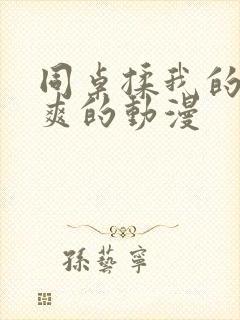 同桌揉我的
爽的動漫
孫藝寧